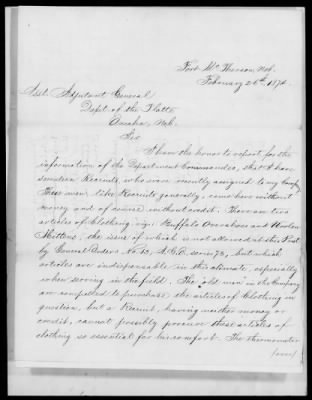 Fort McPherson, Neb.
February 26th, 1874.
Asst. Adjutant General
Dept. of the Platte
Omaha, Neb.
Sir
I have the honor to report, for the
information of the Department Commander, that I have
seventeen Recruits, who were recently assigned to my Comp'y
These men, like Recruits generally, came here without
money and of course without credit. There are two
articles of Clothing viz: Buffalo Overshoes and Woolen
Mittens, the issue of which is not allowed at this Post
by General Orders No. 63, A.G.O. series 73, but which
articles are indispensable in this climate, especially
when serving in the field. The old men in the Company
are compelled to purchase the articles of Clothing in
question, but a Recruit, having neither money or
credit, cannot possibly procure these articles of
clothing so essential for his comfort. The thermometer
(over)